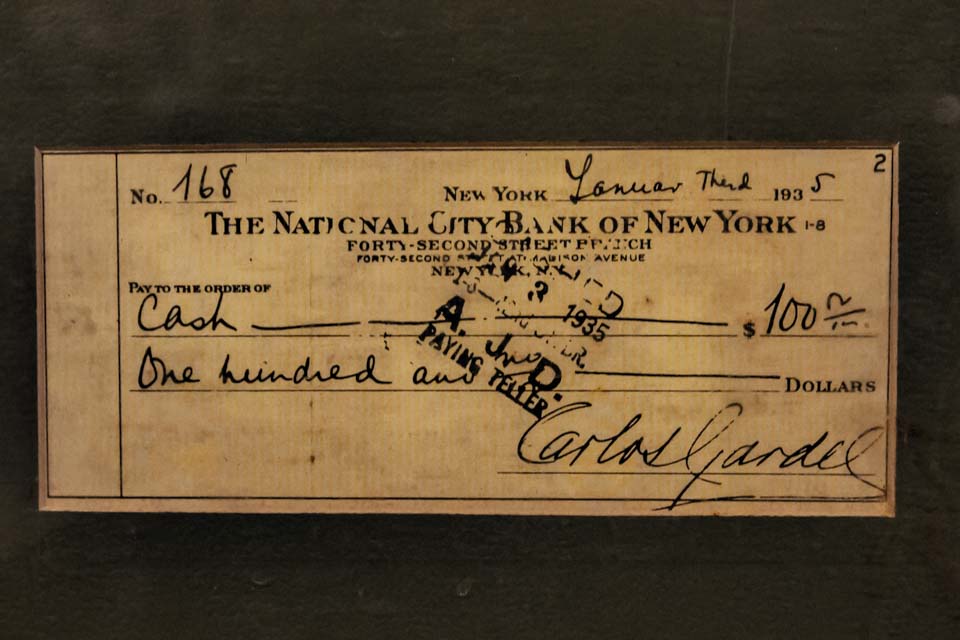 2
No. 168 NEW YORK Januar Third 1935
THE NATIONAL CITY BANK OF NEW YORK 1-8
FORTY-SECOND STREET BRANCH
FORTY-SECOND STREET AT MADISON AVENUE
NEW YORK, N.Y.
PAY TO THE ORDER OF
Cash $ 100
One hundred and DOLLARS
3 1935
A. J. D.
PAYING TELLER
Carlos Gardel